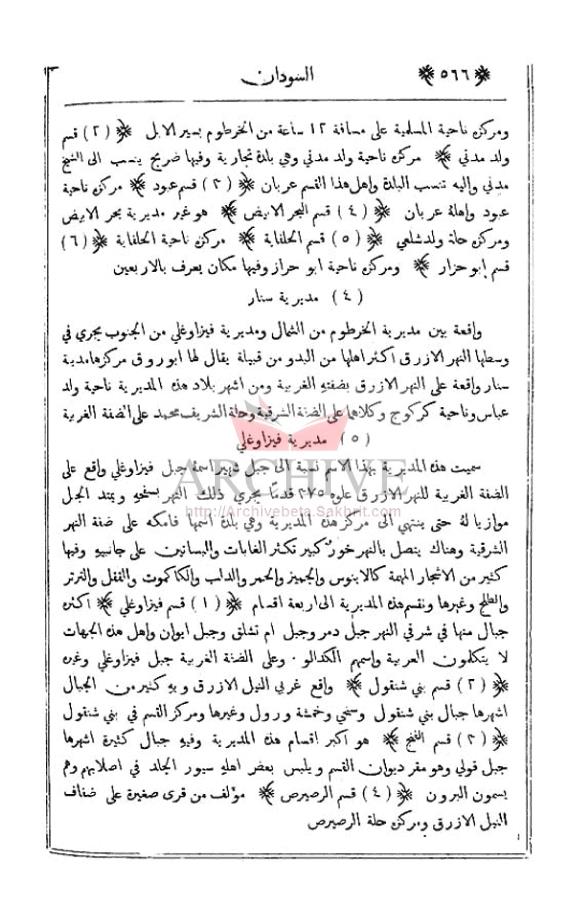 ﴿ ٥٦٦ ﴾ السودان
ومركزه ناحية المسلمية على مسافة ١٢ ساعة من الخرطوم بسير الابل ﴿ (٢) قسم
ولد مدني ﴾ مركزه ناحية ولد مدني وهي بلدة تجارية وفيها ضريح ينسب الى الشيخ
مدني واليه تنسب البلدة واهل هذا القسم عربان ﴿ (٣) قسم عبود ﴾ مركزه ناحية
عبود واهله عربان ﴿ (٤) قسم البحر الابيض ﴾ هو غير مديرية بحر الابيض
ومركزه حلة ولد شلعي ﴿ (٥) قسم الحلفاية ﴾ مركزه ناحية الحلفاية ﴿ (٦)
قسم ابو حزار ﴾ ومركزه ناحية ابو حراز وفيها مكان يعرف بالاربعين
(٤) مديرية سنار
واقعة بين مديرية الخرطوم من الشمال ومديرية فيزاوغلي من الجنوب يجري في
وسطها النهر الازرق اكثر اهلها من البدو من قبيلة يقال لها ابو روق مركزها مدينة
سنار واقعة على النهر الازرق بضفته الغربية ومن اشهر بلاد هذه المديرية ناحية ولد
عباس وناحية كركوج وكلاهما على الضفة الشرقية وحلة الشريف محمد على الضفة الغربية
(٥) مديرية فيزاوغلي
سميت هذه المديرية بهذا الاسم نسبة الى جبل شهير اسمه جبل فيزاوغلي واقع على
الضفة الغربية للنهر الازرق علوه ٢٧٥ قدمًا يجري ذلك النهر بسفحه ويمتد الجبل
موازيا له حتى ينتهي الى مركز هذه المديرية وهي بلدة اسمها فامكه على ضفة النهر
الشرقية وهناك يتصل بالنهر خور كبير تكثر الغابات والبساتين على جانبيه وفيها
كثير من الاشجار المهمة كالابنوس والجميز والحمر والداب والكاكموت والقفل والترتر
والطلح وغيرها وتقسم هذه المديرية الى اربعة اقسام ﴿ (١) قسم فيزاوغلي ﴾ اكثره
جبال منها في شرقي النهر جبل دمر وجبل ام تشلق وجبل ابوان واهل هذه الجهات
لا يتكلمون العربية واسمهم الكدالو. وعلى الضفة الغربية جبل فيزاوغلي وغيره
﴿ (٢) قسم بني شنقول ﴾ واقع غربي النيل الازرق وبه كثير من الجبال
اشهرها جبال بني شنقول وسنجي وخمشة ورول وغيرها ومركز القسم في بني شنقول
﴿ (٣) قسم الفنج ﴾ هو اكبر اقسام هذه المديرية وفيه جبال كثيرة اشهرها
جبل قولي وهو مقر ديوان القسم ويلبس بعض اهله سيور الجلد في اصلابهم وهم
يسمون البرون ﴿ (٤) قسم الرصيرص ﴾ مؤلف من قرى صغيرة على ضفاف
النيل الازرق ومركزه حلة الرصيرص
ARCHIVE
http://Archivebeta.Sakhrit.com